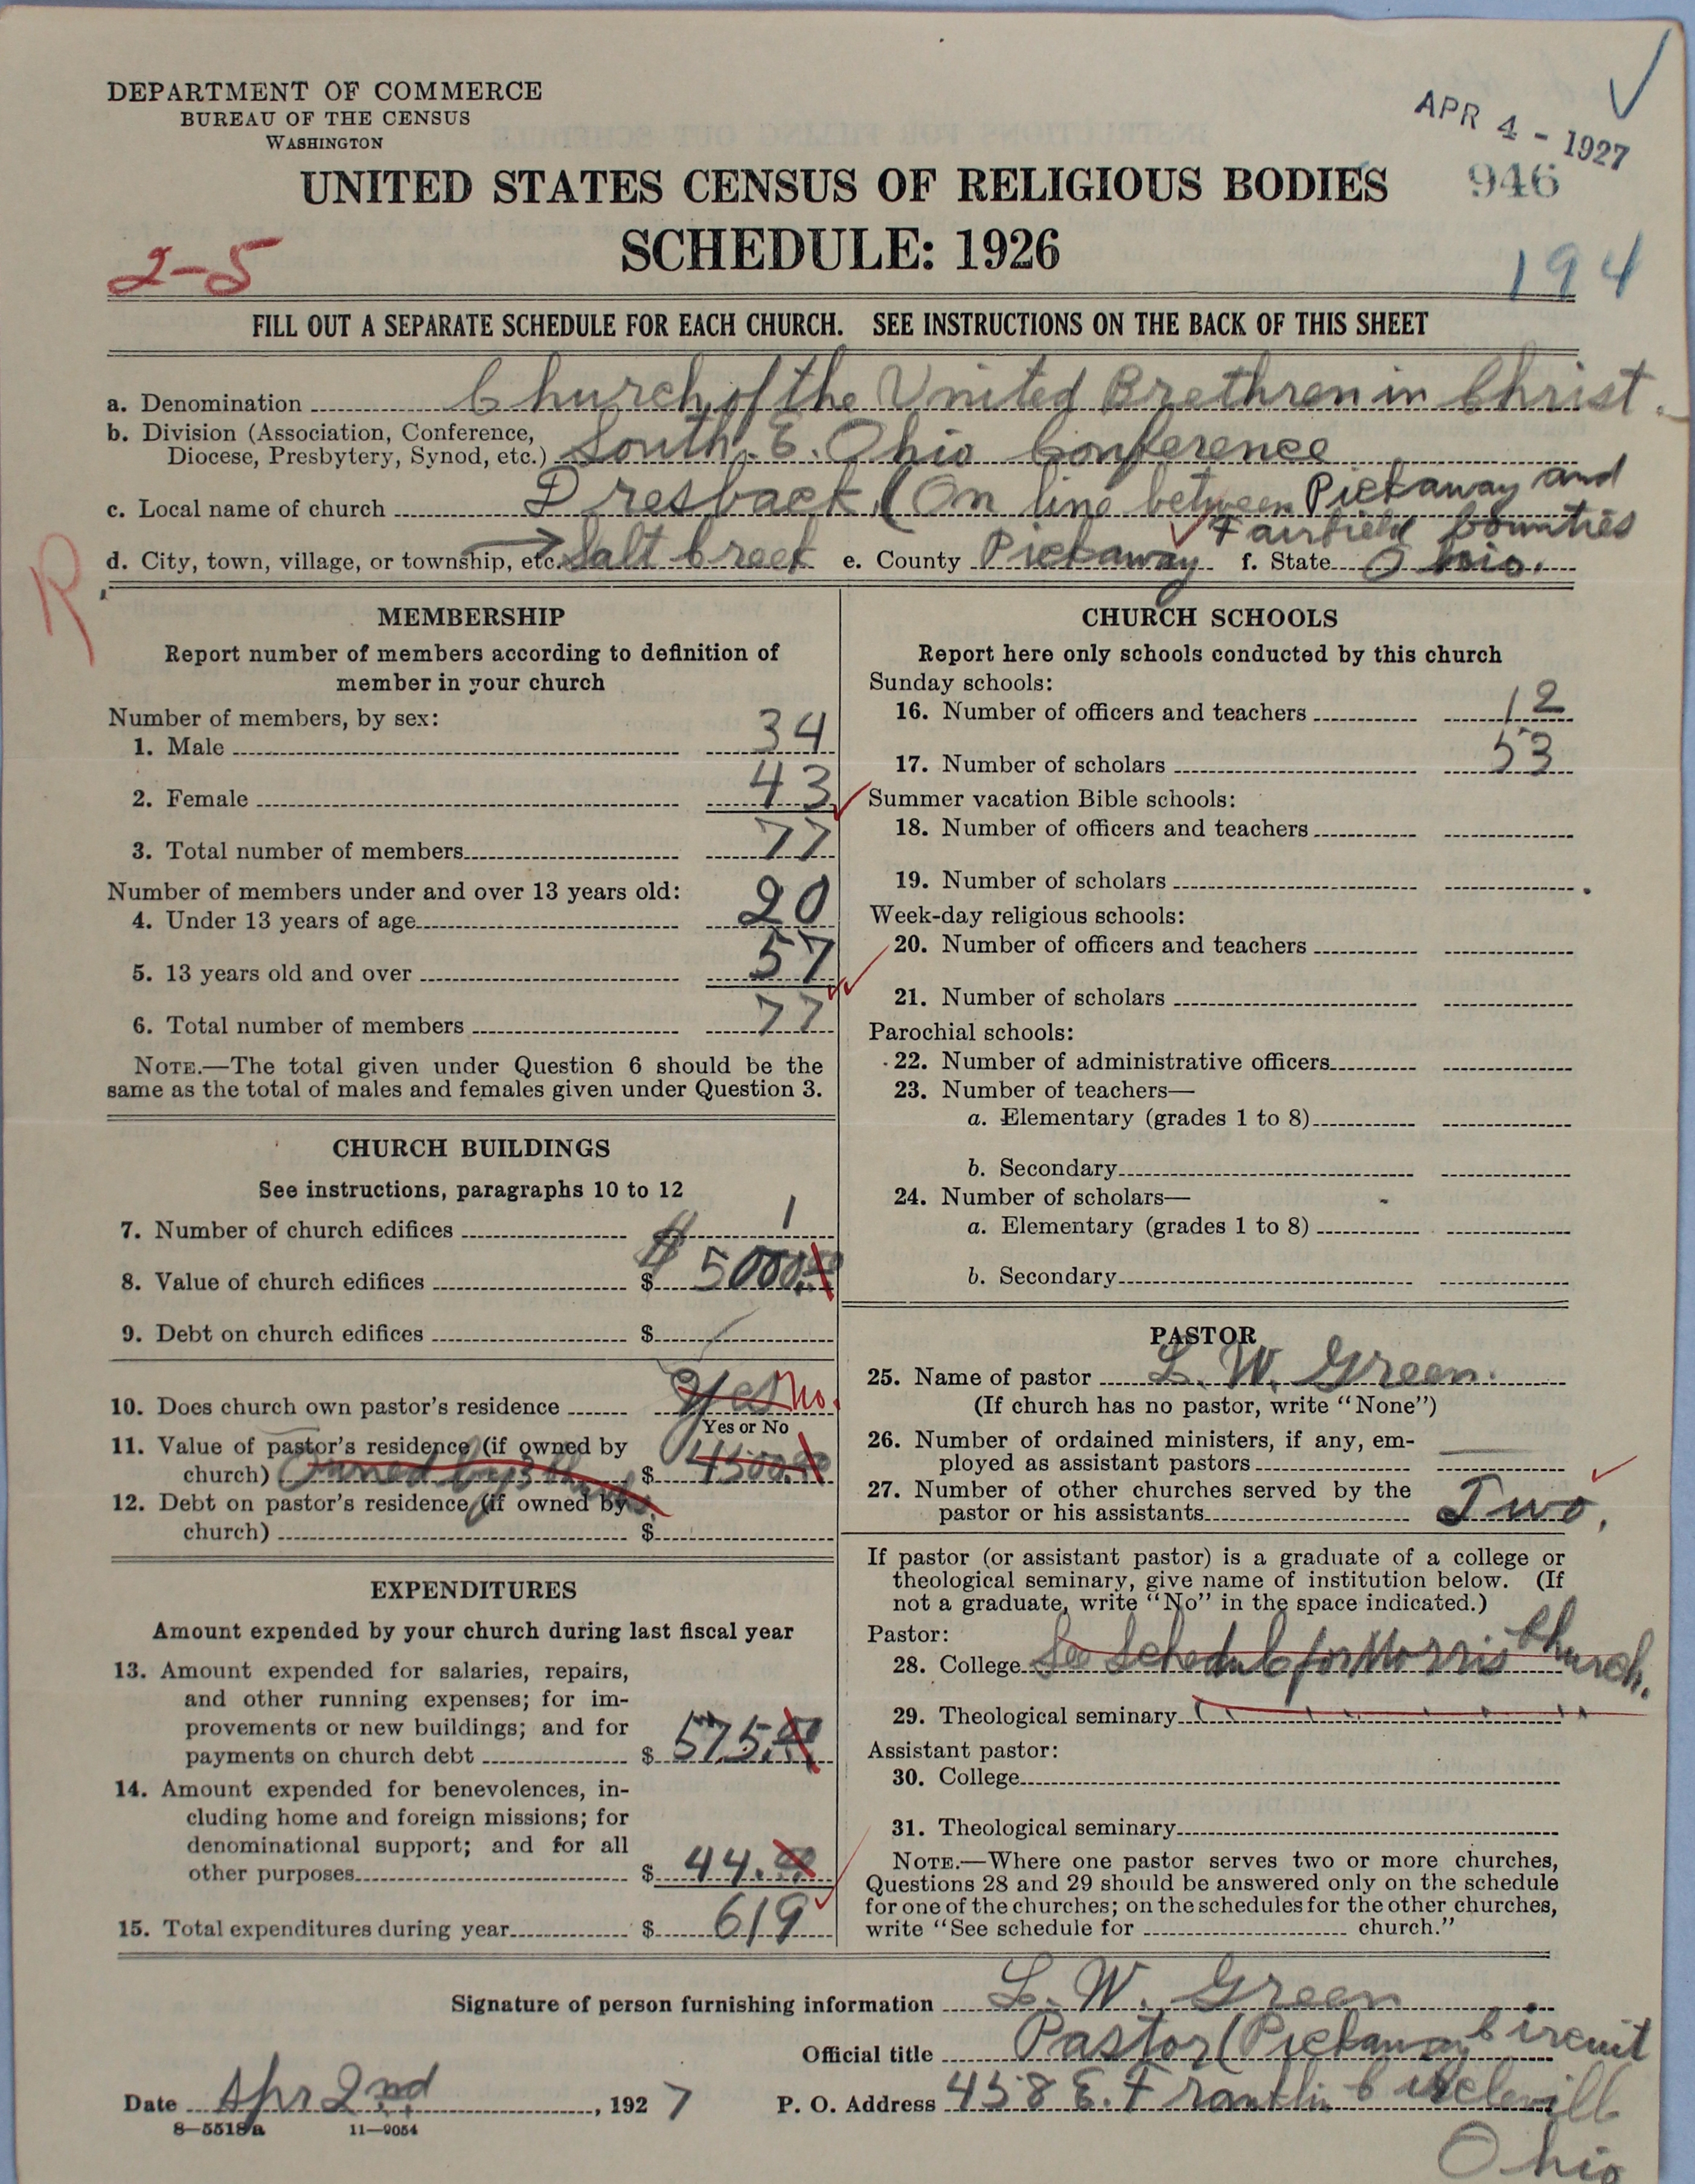 DEPARTMENT OF COMMERCE
BUREAU OF THE CENSUS
WASHINGTON
APR 4 - 1927
UNITED STATES CENSUS OF RELIGIOUS BODIES
946
SCHEDULE: 1926
2-5
194
FILL OUT A SEPARATE SCHEDULE FOR EACH CHURCH. SEE INSTRUCTIONS ON THE BACK OF THIS SHEET
a. Denomination Church of the United Brethren in Christ.
b. Division (Association, Conference,
Diocese, Presbytery, Synod, etc.) South. E. Ohio Conference
c. Local name of church Dresback. (On line between Pickaway and
Fairfield Counties
d. City, town, village, or township, etc. Salt Creek e. County Pickaway f. State Ohio.
R
MEMBERSHIP
Report number of members according to definition of
member in your church
Number of members, by sex:
1. Male 34
2. Female 43
3. Total number of members 77
Number of members under and over 13 years old:
4. Under 13 years of age 20
5. 13 years old and over 57
6. Total number of members 77
NOTE.—The total given under Question 6 should be the
same as the total of males and females given under Question 3.
CHURCH BUILDINGS
See instructions, paragraphs 10 to 12
7. Number of church edifices 1
8. Value of church edifices $ 5000.00
9. Debt on church edifices $
10. Does church own pastor's residence Yes No.
Yes or No
11. Value of pastor's residence (if owned by
church) Owned by 3 $ 4500.00
12. Debt on pastor's residence (if owned by
church) $
EXPENDITURES
Amount expended by your church during last fiscal year
13. Amount expended for salaries, repairs,
and other running expenses; for im-
provements or new buildings; and for
payments on church debt $ 575.00
14. Amount expended for benevolences, in-
cluding home and foreign missions; for
denominational support; and for all
other purposes $ 44.00
15. Total expenditures during year $ 619
CHURCH SCHOOLS
Report here only schools conducted by this church
Sunday schools:
16. Number of officers and teachers 12
17. Number of scholars 53
Summer vacation Bible schools:
18. Number of officers and teachers
19. Number of scholars
Week-day religious schools:
20. Number of officers and teachers
21. Number of scholars
Parochial schools:
22. Number of administrative officers
23. Number of teachers—
a. Elementary (grades 1 to 8)
b. Secondary
24. Number of scholars—
a. Elementary (grades 1 to 8)
b. Secondary
PASTOR
25. Name of pastor L. W. Green.
(If church has no pastor, write "None")
26. Number of ordained ministers, if any, em-
ployed as assistant pastors
27. Number of other churches served by the
pastor or his assistants Two.
If pastor (or assistant pastor) is a graduate of a college or
theological seminary, give name of institution below. (If
not a graduate, write "No" in the space indicated.)
Pastor:
28. College See Schedule for Morris Church.
29. Theological seminary
Assistant pastor:
30. College
31. Theological seminary
NOTE.—Where one pastor serves two or more churches,
Questions 28 and 29 should be answered only on the schedule
for one of the churches; on the schedules for the other churches,
write "See schedule for church."
Signature of person furnishing information L. W. Green
Official title Pastor (Pickaway Circuit
Date Apr 2nd, 1927 P. O. Address 458 E. Franklin Circleville
Ohio
8—5518a 11—9054